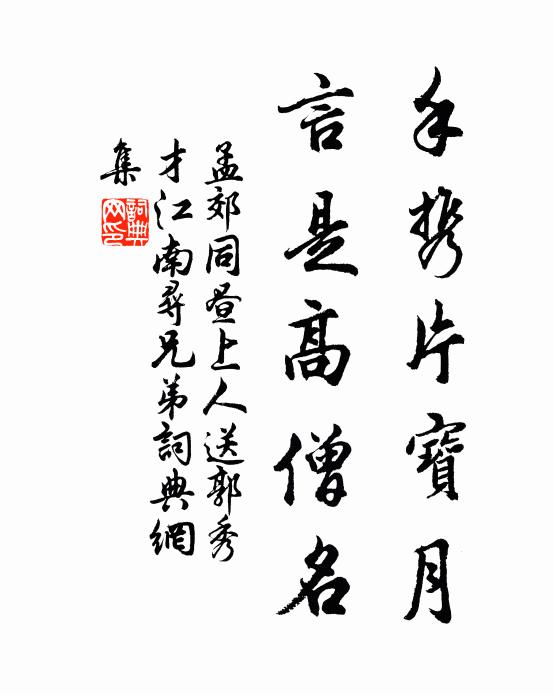 手攜片寶月
言是高僧名
孟郊同晝上人送郭秀
才江南尋兄弟詞典網
集
詞典
网印